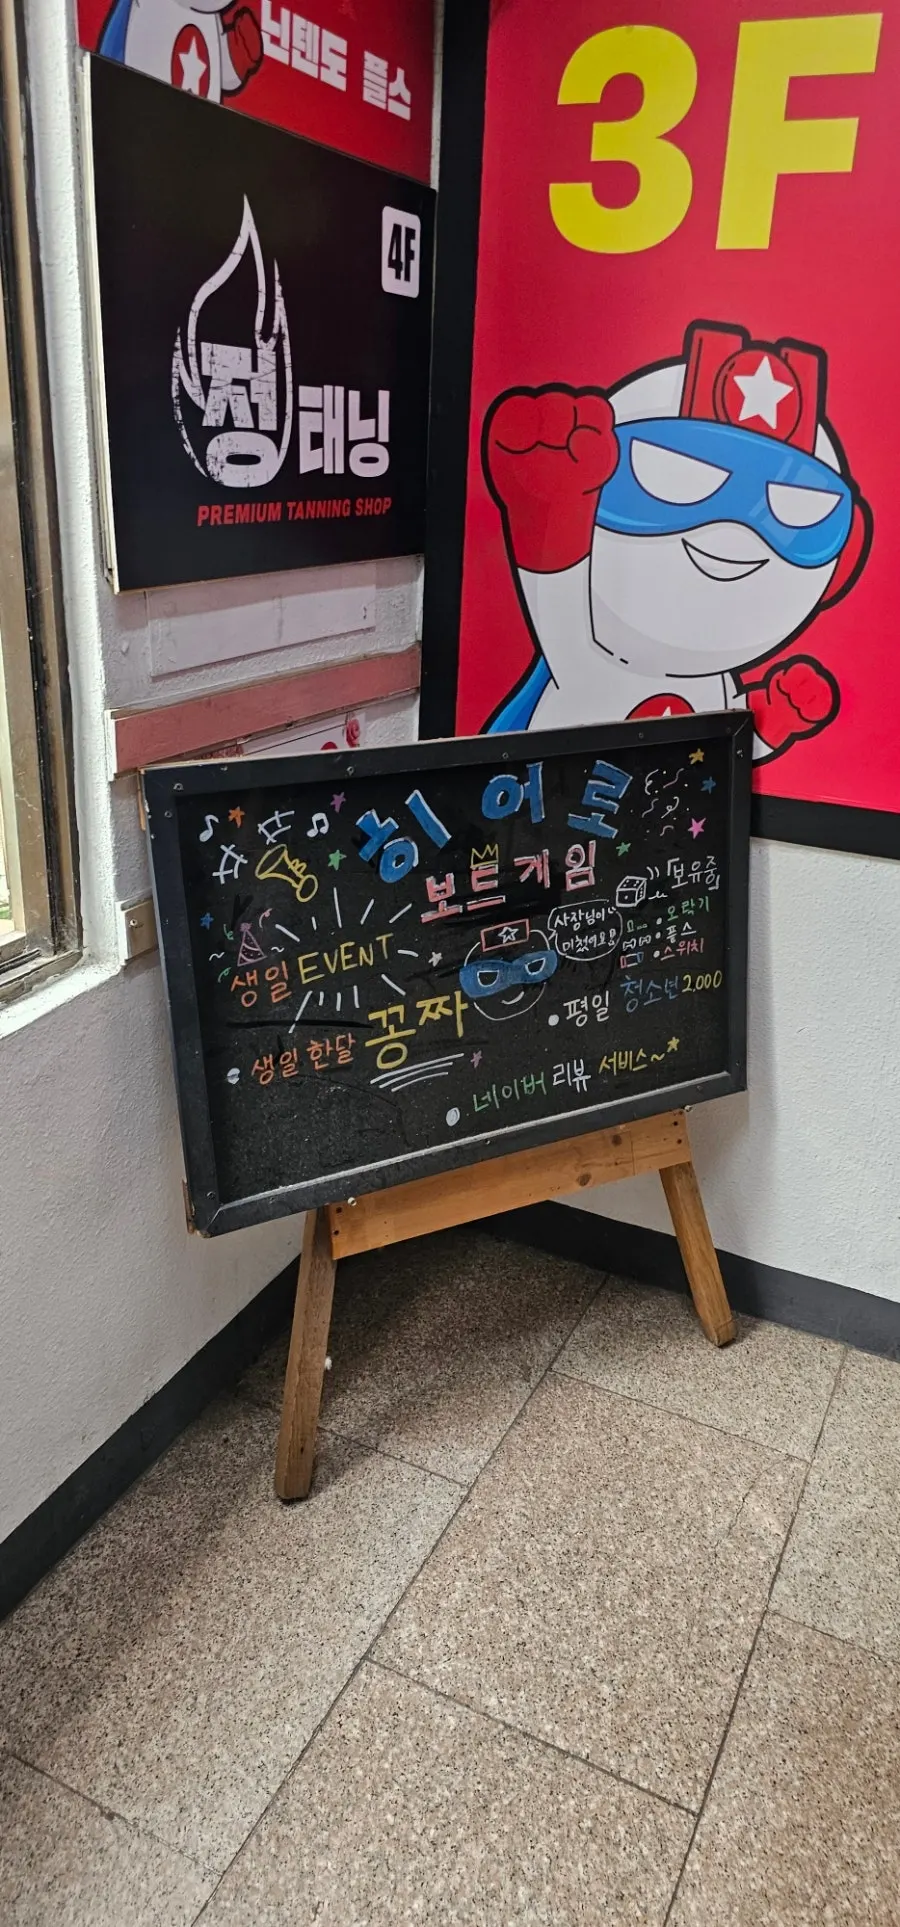 닌텐도 플스
3F
4F
정태닝
PREMIUM TANNING SHOP
히어로
보드게임
「보유중」
• 오락기
• 플스
• 스위치
사장님이
미쳤어요!!
생일 EVENT
• 생일 한달 꽁짜
• 평일 청소년 2,000
• 네이버 리뷰 서비스~